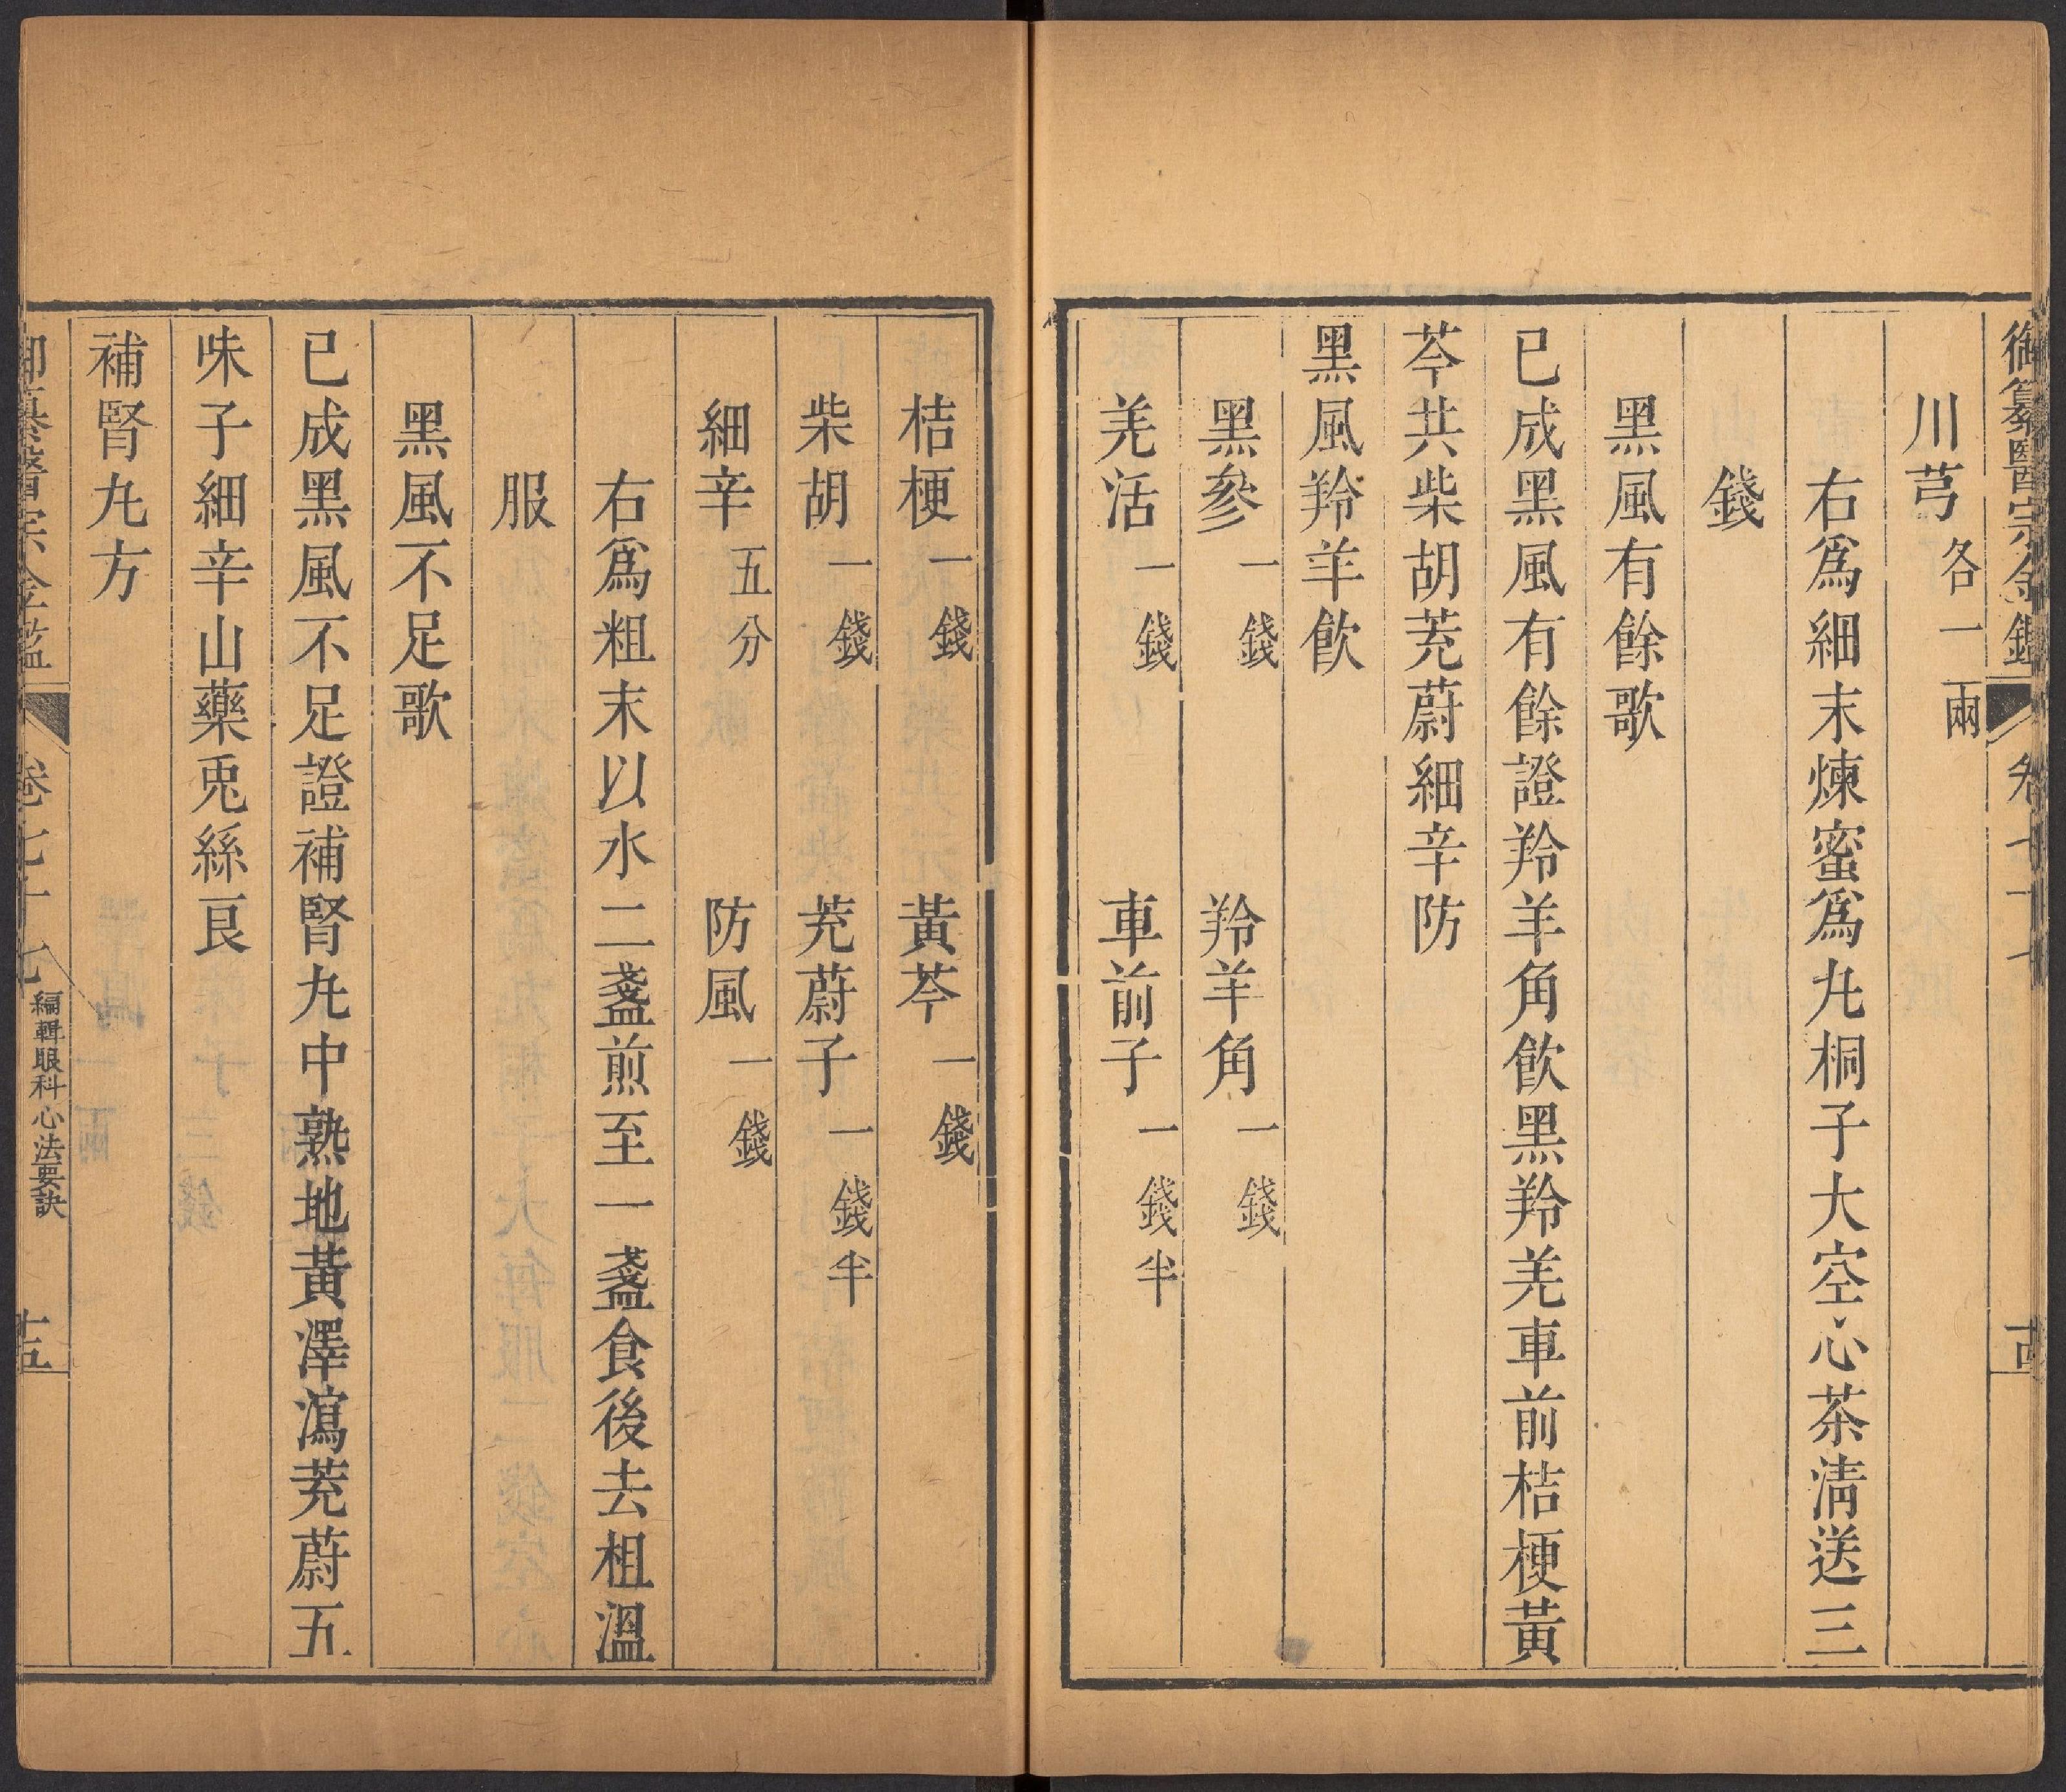 御纂醫宗金鑑 卷七十七
川芎各一兩
右爲細末煉蜜爲丸桐子大空心茶清送三
錢
黑風有餘歌
已成黑風有餘證羚羊角飲黑羚羌車前桔梗黃
芩共柴胡茺蔚細辛防
黑風羚羊飲
黑參一錢 羚羊角一錢
羌活一錢 車前子一錢半
桔梗一錢 黃芩一錢
柴胡一錢 茺蔚子一錢半
細辛五分 防風一錢
右爲粗末以水二盞煎至一盞食後去柤溫
服
黑風不足歌
已成黑風不足證補腎丸中熟地黃澤瀉茺蔚五
味子細辛山藥兎絲良
補腎丸方
御纂醫宗金鑑 卷七十七 編輯眼科心法要訣 十五